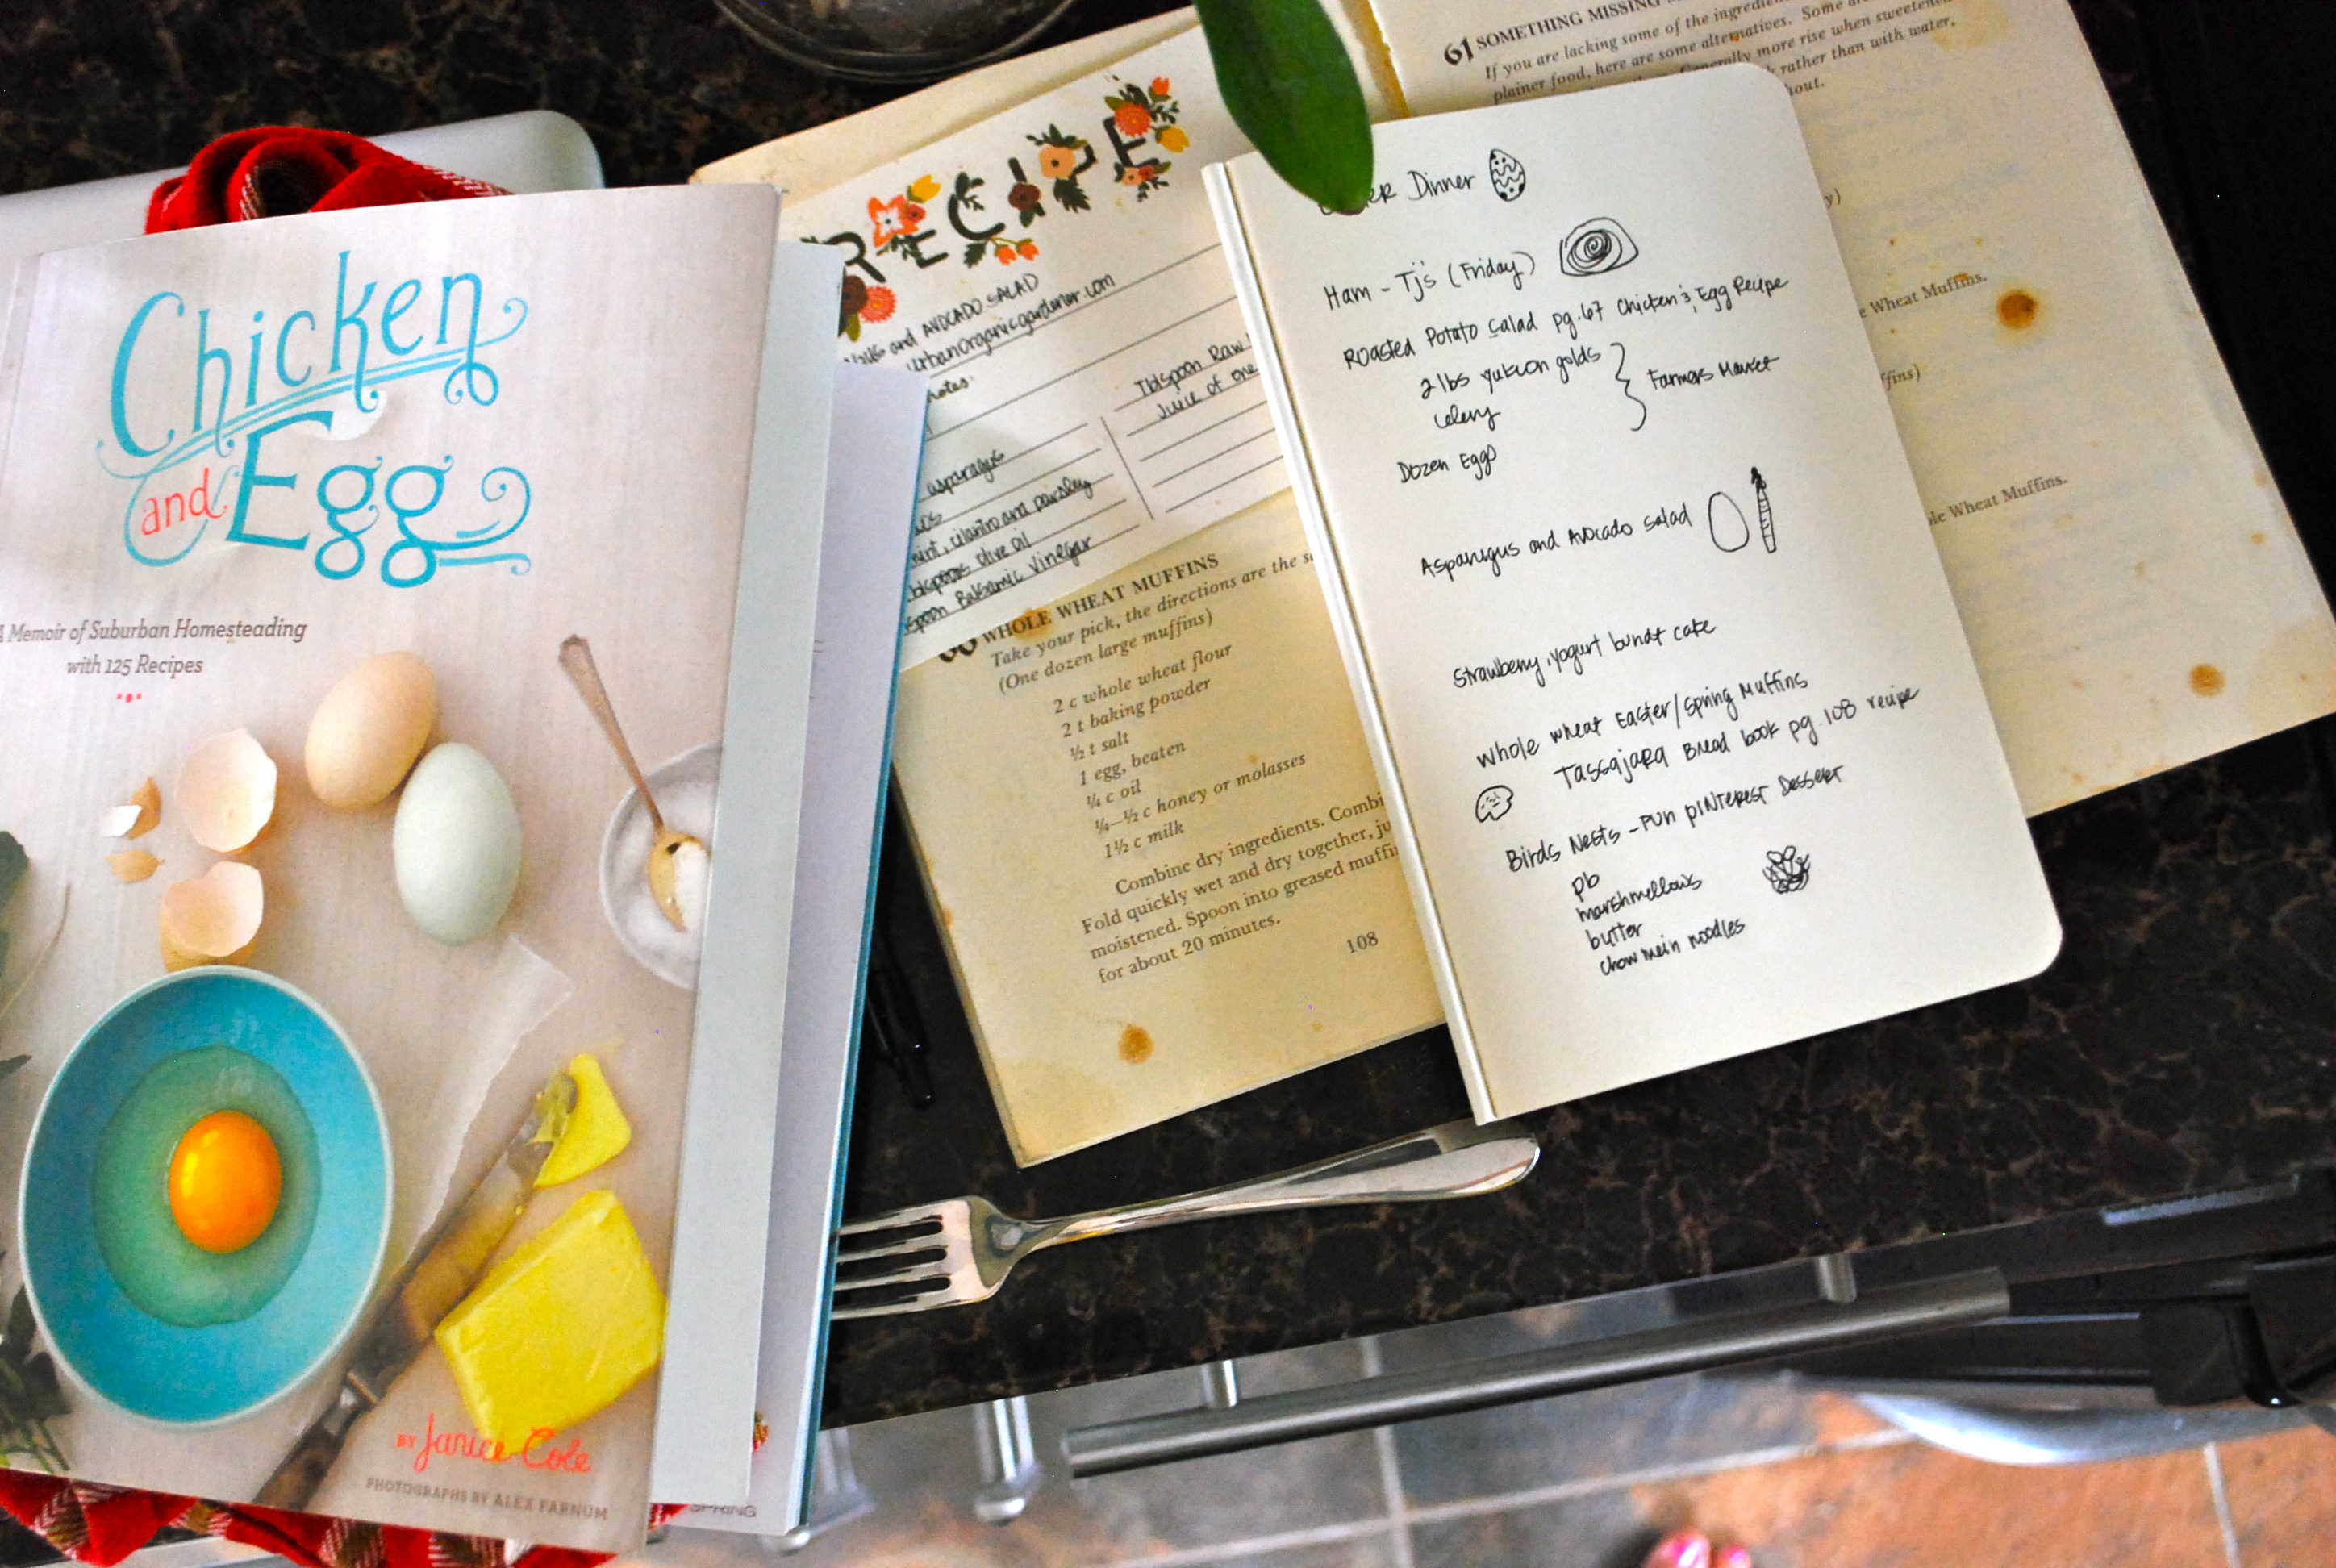 Chicken
and Egg
A Memoir of Suburban Homesteading
with 125 Recipes
BY Janice Cole
PHOTOGRAPHS BY ALEX FARNUM
SPRING
RECIPE
and AVOCADO SALAD
UrbanOrganicgardener.com
notes:
asparagus
mint, cilantro and parsley
olive oil
Balsamic Vinegar
Tblspoon Raw
Juice of one
WHOLE WHEAT MUFFINS
Take your pick, the directions are the
(One dozen large muffins)
2 c whole wheat flour
2 t baking powder
½ t salt
1 egg, beaten
¼ c oil
¼—½ c honey or molasses
1½ c milk
Combine dry ingredients.
Fold quickly wet and dry together,
moistened. Spoon into greased
for about 20 minutes.
108
61 SOMETHING MISSING
If you are lacking some of the
plainer food, here are some alternatives. Some
Generally more rise when
rather than with water,
Wheat Muffins.
Wheat Muffins.
Dinner
Ham - Tj's (Friday)
Roasted Potato Salad pg. 67 Chicken & Egg Recipe
2 lbs yukon golds
celery
Farmers Market
Dozen Eggs
Asparagus and Avocado Salad
Strawberry, yogurt bundt cake
Whole wheat Easter/Spring Muffins
Tassajara Bread book pg. 108 recipe
Birds Nests - Fun pINterest Dessert
pb
marshmellows
butter
chow mein noodles